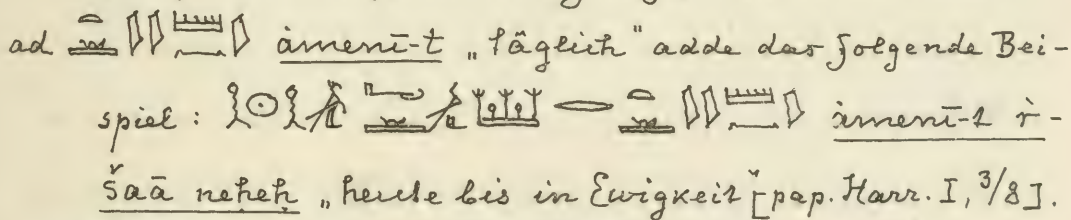 ad ȧmenī-t „täglich" adde das folgende Bei-
spiel: ȧmenī-t r-
šaā neḥeḥ „heute bis in Ewigkeit" [pap. Harr. I, 3/8].